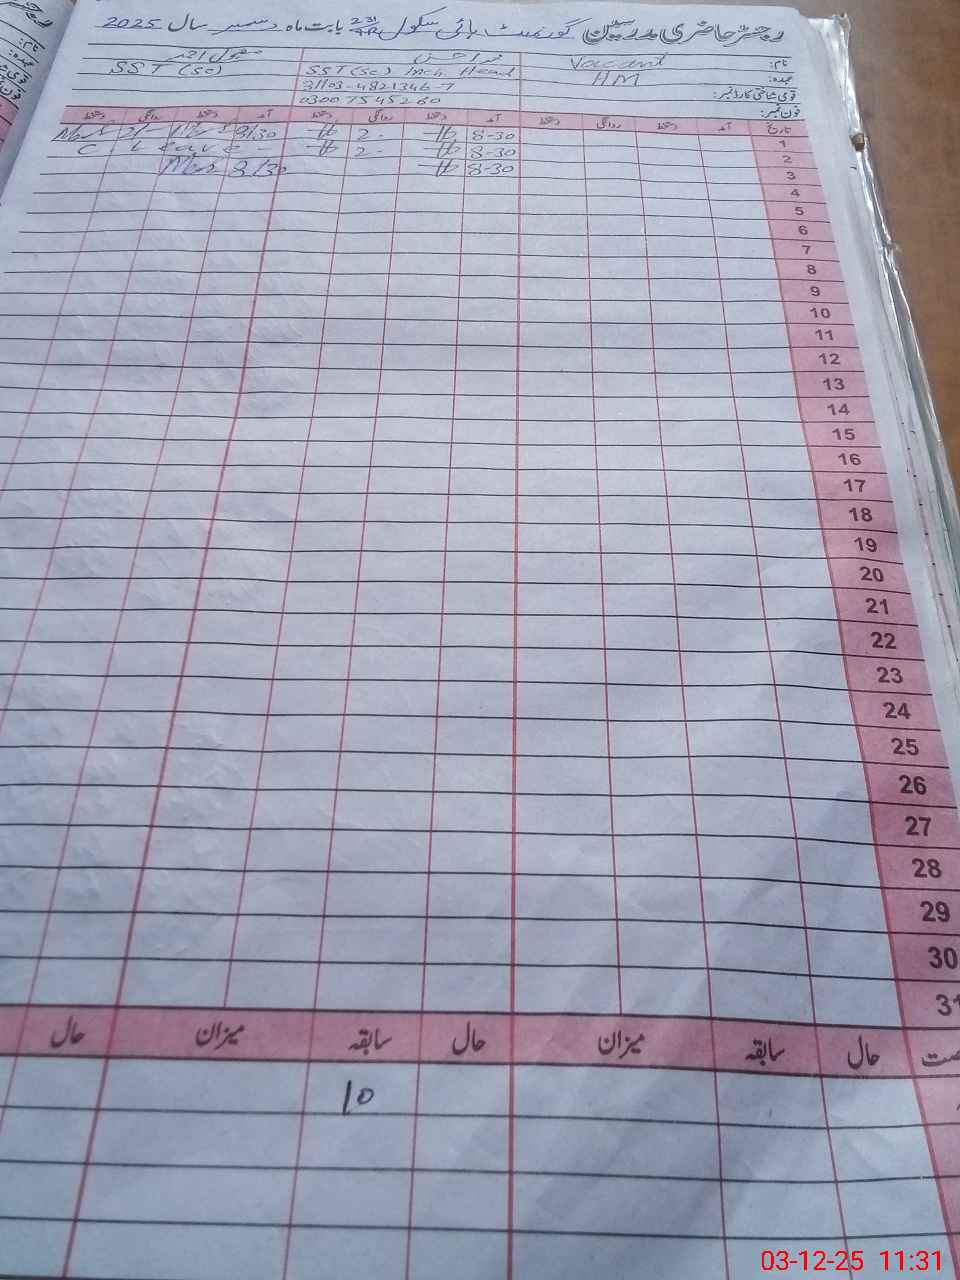 رجسٹر حاضری مدرسین گورنمنٹ ہائی سکول 231/TR بابت ماہ دسمبر سال 2025
نام: Vacant
عہدہ: HM SST (Sc) Inch. Head SST (Sc)
قومی شناختی کارڈ نمبر: 31103-4821346-7
فون نمبر: 0300 7545260
تاریخ آمد دستخط روانگی دستخط آمد دستخط روانگی دستخط آمد دستخط روانگی دستخط
1 8-30 2- 8/30 2/-
2 8-30 2- C Leave -
3 8-30 8/30
4
5
6
7
8
9
10
11
12
13
14
15
16
17
18
19
20
21
22
23
24
25
26
27
28
29
30
31
حال سابقہ میزان حال سابقہ میزان حال
10
03-12-25 11:31